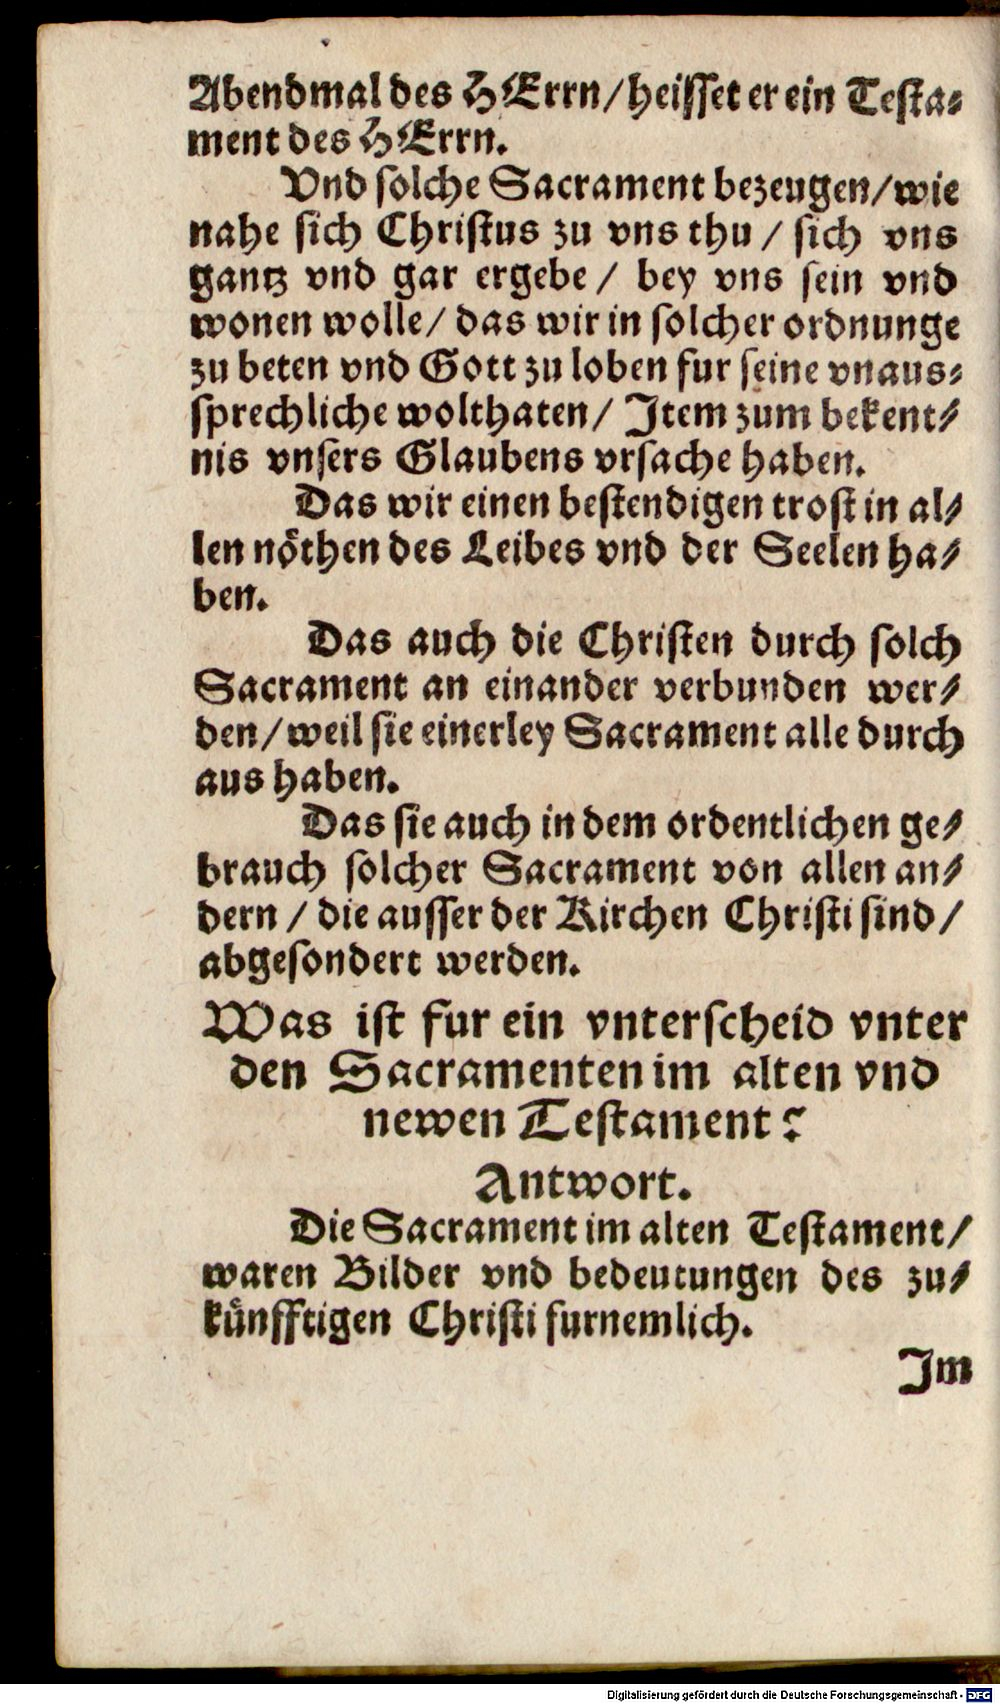 Abendmal des HErrn/heisset er ein Testa-
ment des HErrn.
Vnd solche Sacrament bezeugen/wie
nahe sich Christus zu vns thu / sich vns
gantz vnd gar ergebe / bey vns sein vnd
wonen wolle/ das wir in solcher ordnunge
zu beten vnd Gott zu loben fur seine vnaus-
sprechliche wolthaten/ Item zum bekent-
nis vnsers Glaubens vrsache haben.
Das wir einen bestendigen trost in al-
len nöthen des Leibes vnd der Seelen ha-
ben.
Das auch die Christen durch solch
Sacrament an einander verbunden wer-
den/weil sie einerley Sacrament alle durch
aus haben.
Das sie auch in dem ordentlichen ge-
brauch solcher Sacrament von allen an-
dern / die ausser der Kirchen Christi sind/
abgesondert werden.
Was ist fur ein vnterscheid vnter
den Sacramenten im alten vnd
newen Testament?
Antwort.
Die Sacrament im alten Testament/
waren Bilder vnd bedeutungen des zu-
künfftigen Christi furnemlich.
Im
Digitalisierung gefördert durch die Deutsche Forschungsgemeinschaft - DFG